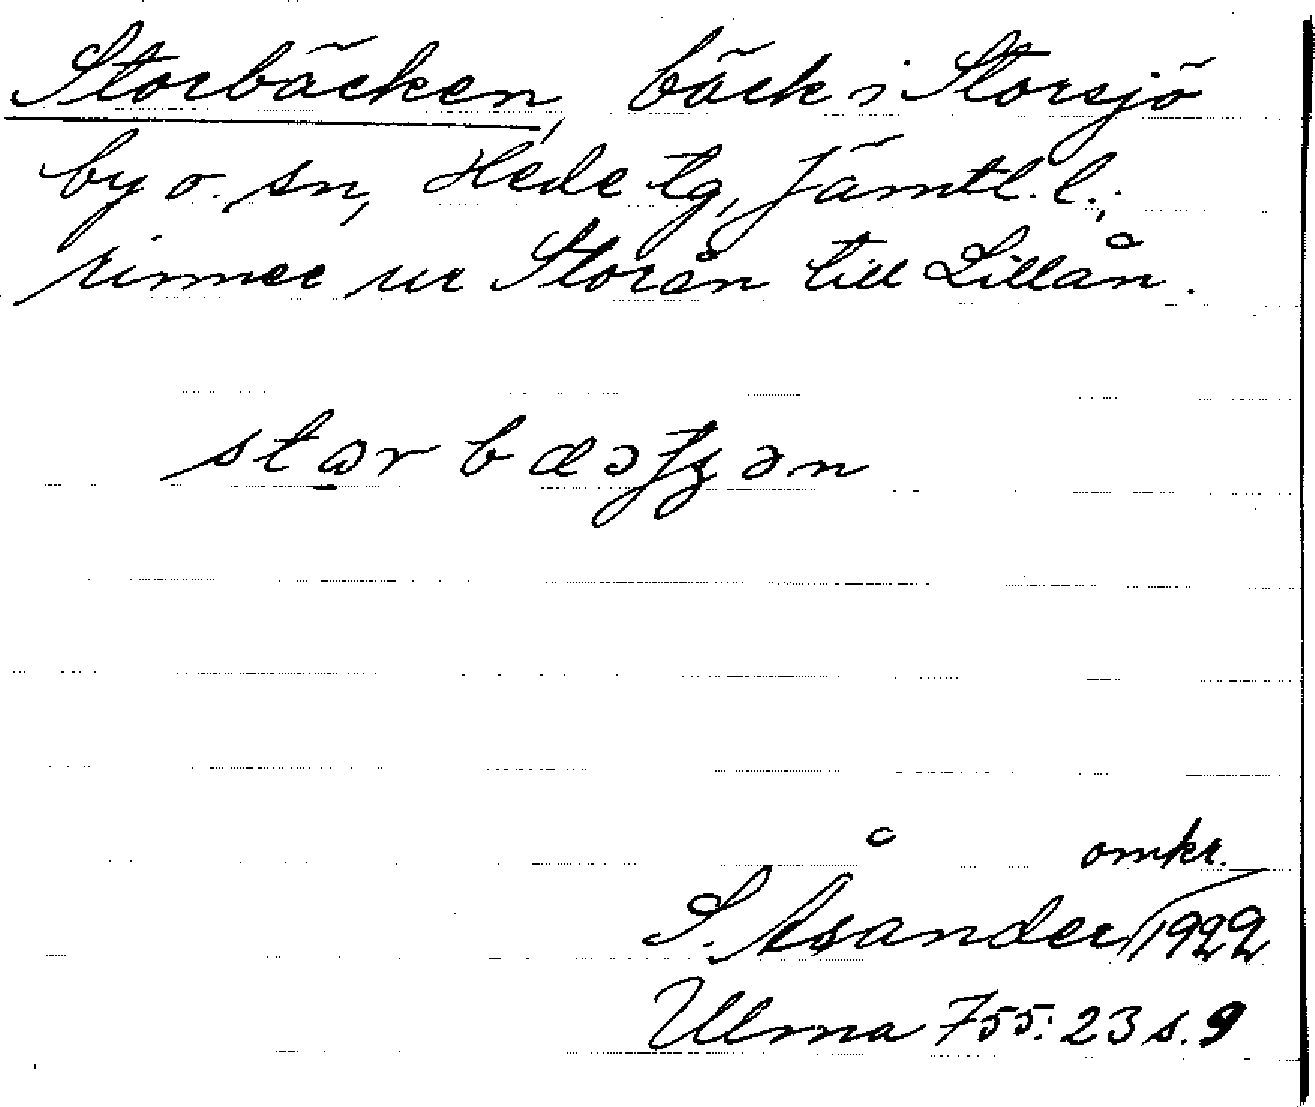 Storbäcken, bäck i Storsjö
by o. sn, Hede tg, Jämtl. l.;
rinner ur Storån till Lillån.
omkr.
S. Åsander/1922
Ulma 755:23 s. 9